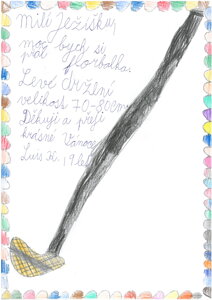 Milí Ježíšku,
moc bych si
přál florbalku.
Levé držení
velikost 70-80cm.
Děkuji a přeji
krásné Vánoce
Luis K., 9 let